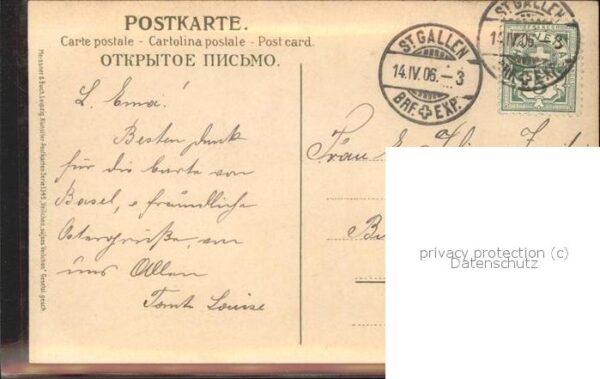 POSTKARTE.
Carte postale - Cartolina postale - Post card.
ОТКРЫТОЕ ПИСЬМО.
ST. GALLEN
14.IV.06.-3
BRF. EXP.
ST. GALLEN
14.IV.06.-3
BRF. EXP.
Meissner & Buch, Leipzig. Künstler-Postkarten Serie
L. Ema!
Besten Dank
für die Carte von
Basel, & freundliche
Ostergrüße, von
uns Allen
Tante Louise
Frau
privacy protection (c)
Datenschutz